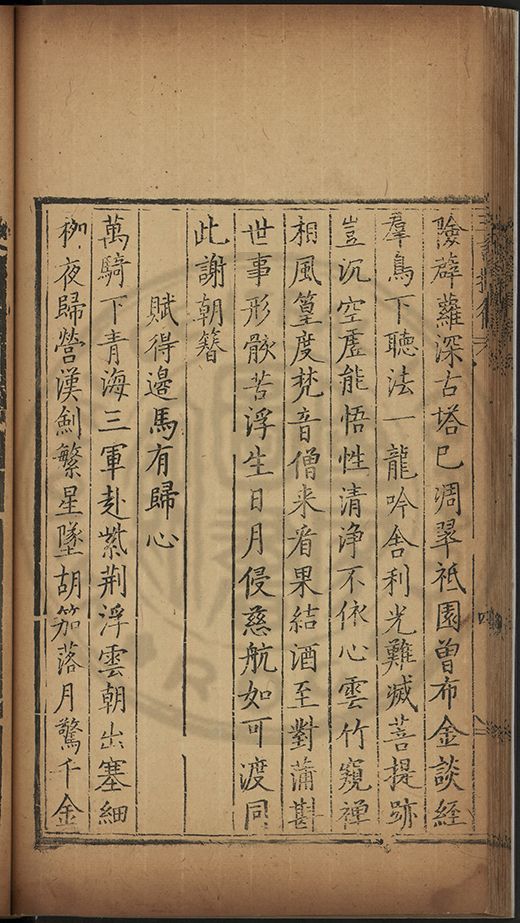 險薜蘿深古塔巳凋翠祗園曾布金談經
羣鳥下聽法一龍吟舍利光難滅菩提跡
豈沉空虛能悟性清淨不依心雲竹窺禪
相風篁度梵音僧来看果結酒至對蒲斟
世事形骸苦浮生日月侵慈航如可渡同
此謝朝簪
賦得邊馬有歸心
萬騎下青海三軍赴紫荆浮雲朝出塞細
栁夜歸營漢劍繁星墜胡笳落月驚千金